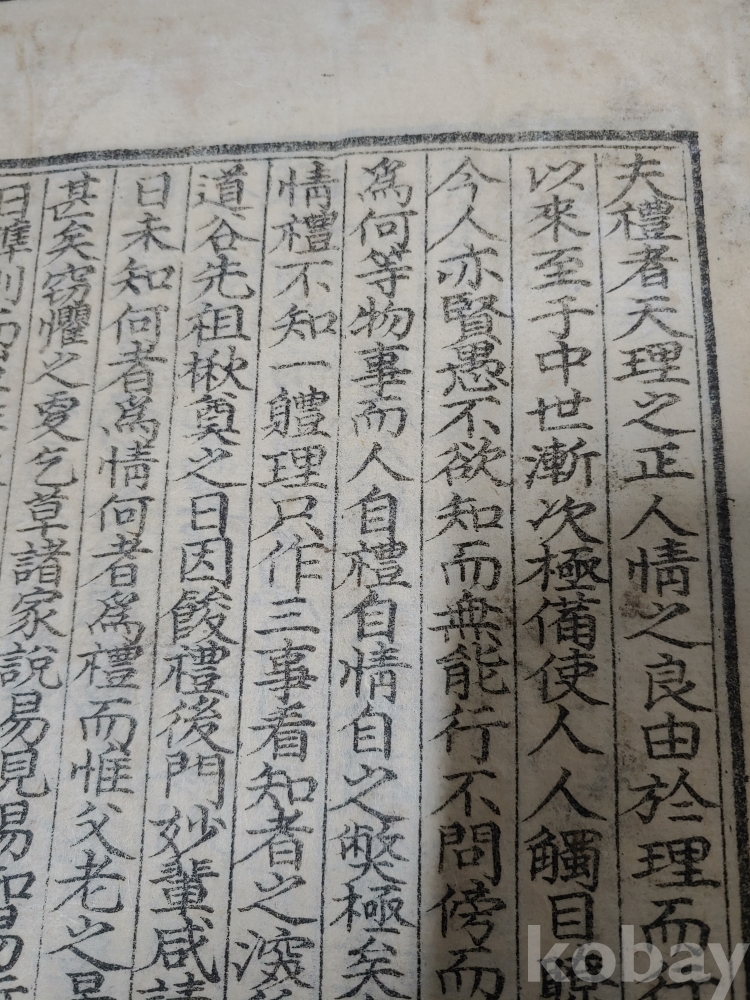 夫禮者天理之正人情之良由於理而
以來至于中世漸次極備使人人觸目
今人亦賢愚不欲知而無能行不問傍而
爲何等物事而人自禮自情自之弊極矣
情禮不知一軆理只作三事看知者之
道谷先祖楸奠之日因餕禮後門妙輩咸請
日未知何者爲情何者爲禮而惟父老之是
甚矣窃懼之爰乞草諸家說易見易知易
kobay